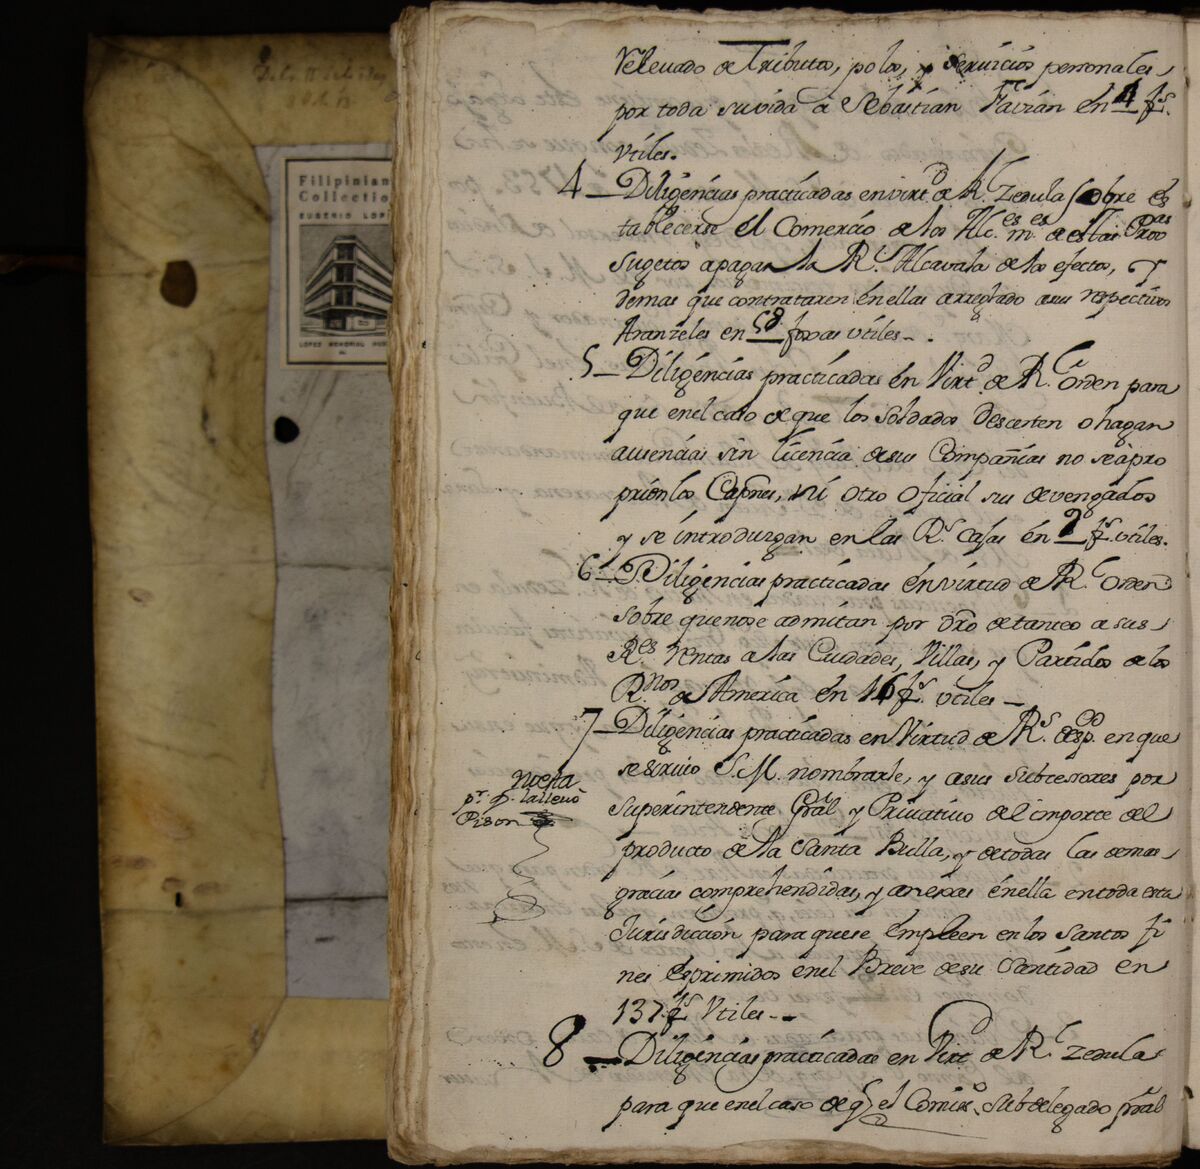 Filipinian
Collectio
EUGENIO LOP
LOPEZ MEMORIAL MUS
Relevado de Tributos, polos, y servicios personales
por toda su vida a Sebastian Favian en 4 fs.
Vtiles.
4 – Diligencias practicadas en virtd. de Rl. Zedula sobre es
tablecerse el Comercio de los Alc.es m.es de estas Prov.as
sugetos a pagar la Rl. Alcavala de los efectos, y
demas que contrataren en ellas arreglado a sus respectivos
Aranzeles en 58 foxas utiles - .
5 – Diligencias practicadas en Virtd. de Rl. orden para
que en el caso de que los soldados deserten o hagan
ausencias sin licencia de sus Compañias no se apro
prien los Capnes, ni otro oficial sus devengados
y se introduzgan en las Rs. caxas en 9 fs. utiles.
6 – Diligencias practicadas en virtud de Rl. orden
sobre que no se admitan por dro de tanteo a sus
Res. Ventas a las Ciudades, Villas, y Partidos de los
Rnos de America en 16 fs. utiles –
7 – Diligencias practicadas en Virtud de Rs. desp.os en que
se sirvio S. M. nombrarle, y a sus subcesores por
Superintendente Gral y Privativo del importe del
producto de la Santa Bulla, y de todas las demas
gracias comprehendidas, y anexas en ella en toda esta
Jurisdiccion para que se empleen en los Santos fi
nes esprimidos en el Breve de su Santidad en
137 fs. Vtiles - -
8 – Diligencias practicadas en Virtd. de Rl. Zedula
para que en el caso de q. el Comiso. subdelegado gral
pr. D.
Pison